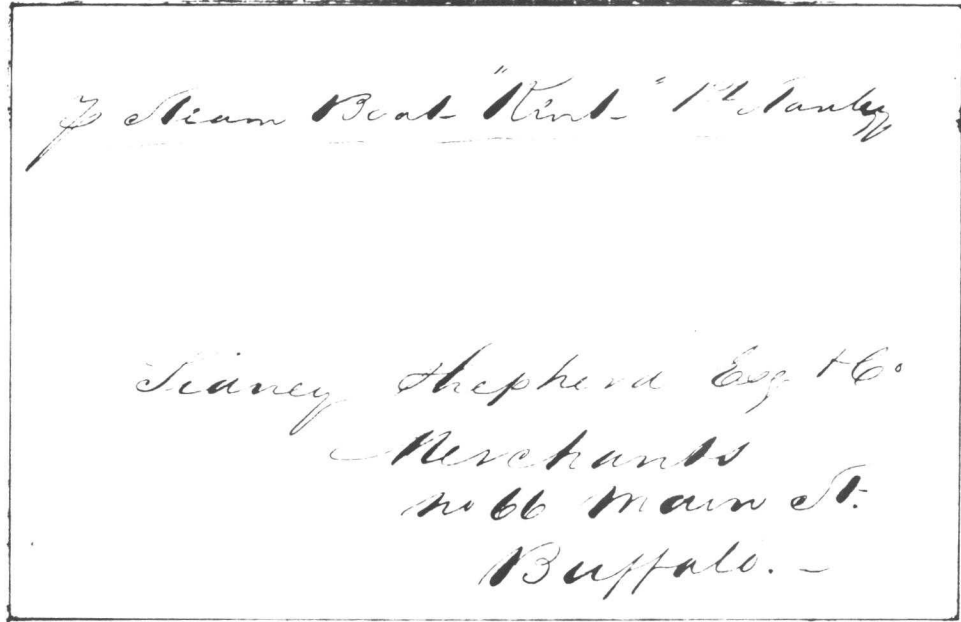 p Steam Boat "Kent" Pt Stanley
Sidney Shepherd Esq & Co
Merchants
No 66 Main St.
Buffalo. -